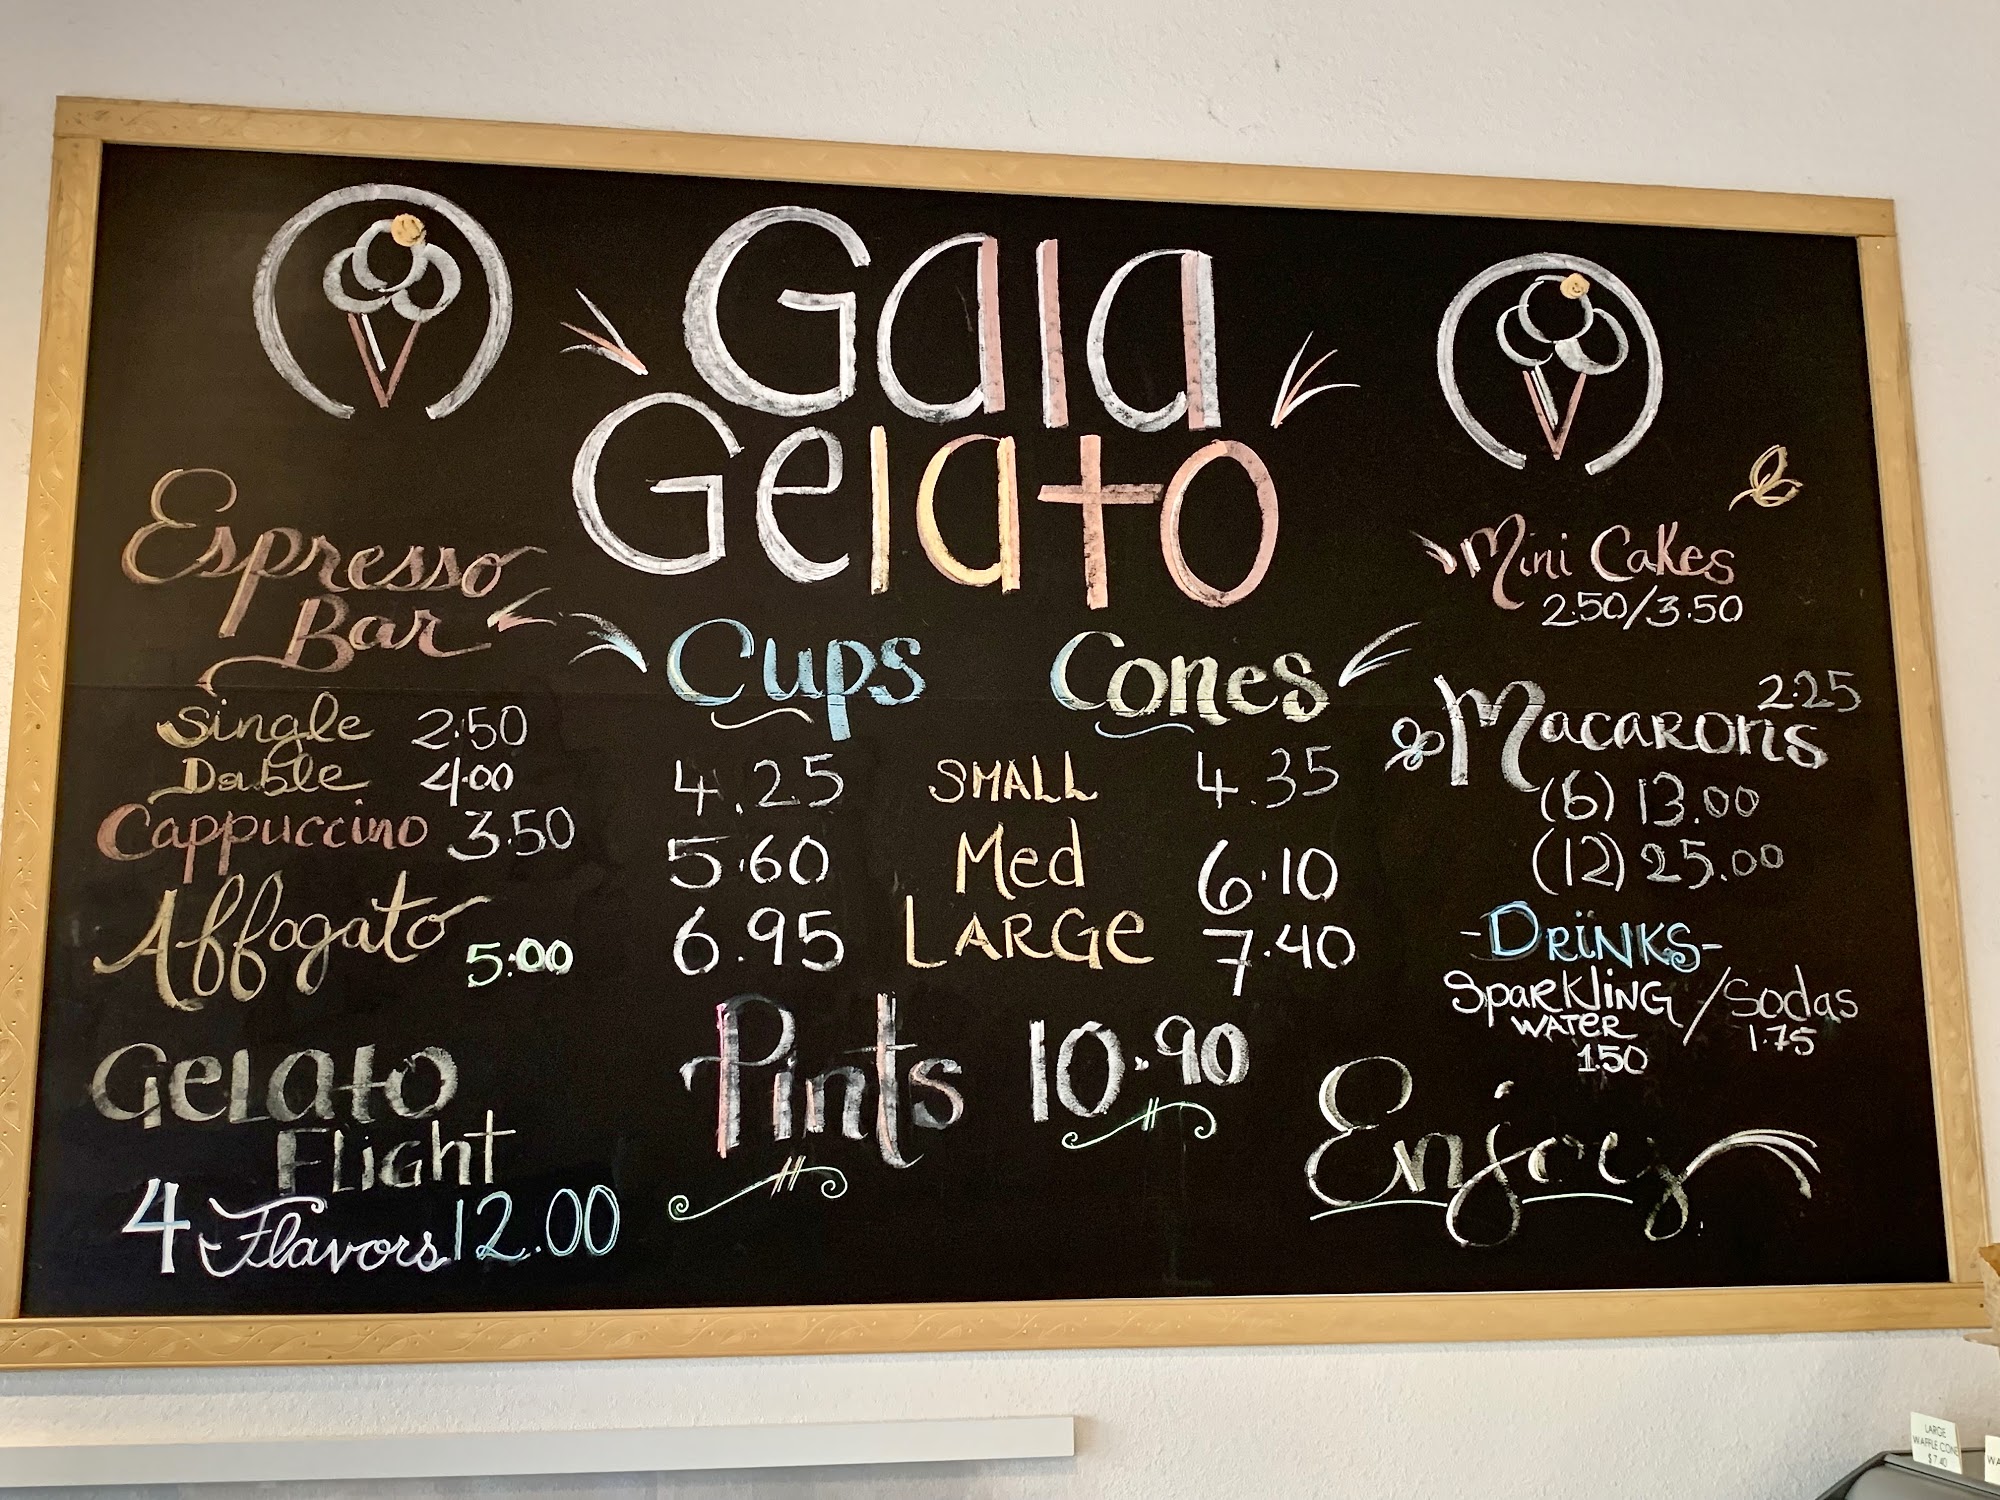 Gaia
Gelato
Espresso
Bar
Single 2.50
Double 4.00
Cappuccino 3.50
Affogato 5.00
Gelato
Flight
4 Flavors 12.00
Cups Cones
4.25 SMALL 4.35
5.60 Med 6.10
6.95 LARGE 7.40
Pints 10.90
Mini Cakes
2.50/3.50
2.25
Macarons
(6) 13.00
(12) 25.00
-DRINKS-
Sparkling / Sodas
WATER 1.75
1.50
Enjoy
LARGE
WAFFLE CONE
$7.40